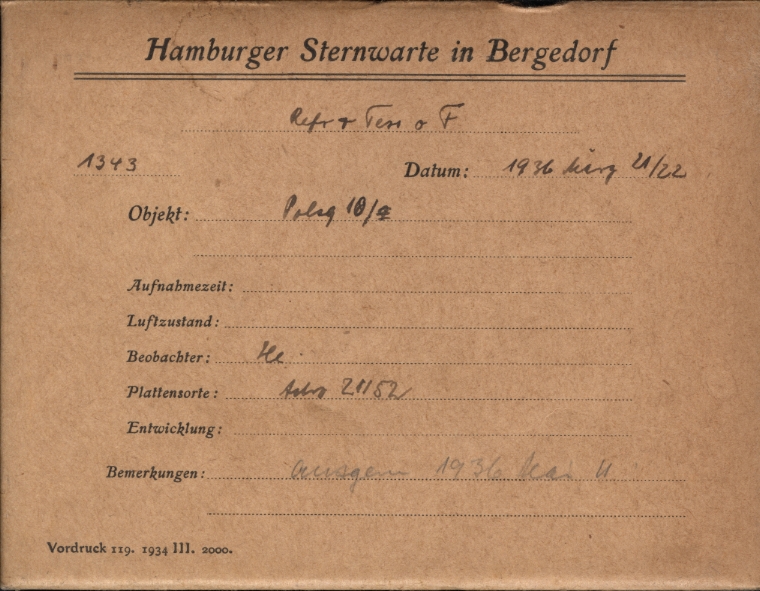 Hamburger Sternwarte in Bergedorf
Refr + Tess o F
1343 Datum: 1936 März 21/22
Objekt: Polsq
Aufnahmezeit:
Luftzustand:
Beobachter: He.
Plattensorte: Astro 21152
Entwicklung:
Bemerkungen: ausgem 1936 Mai 11
Vordruck 119. 1934 III. 2000.